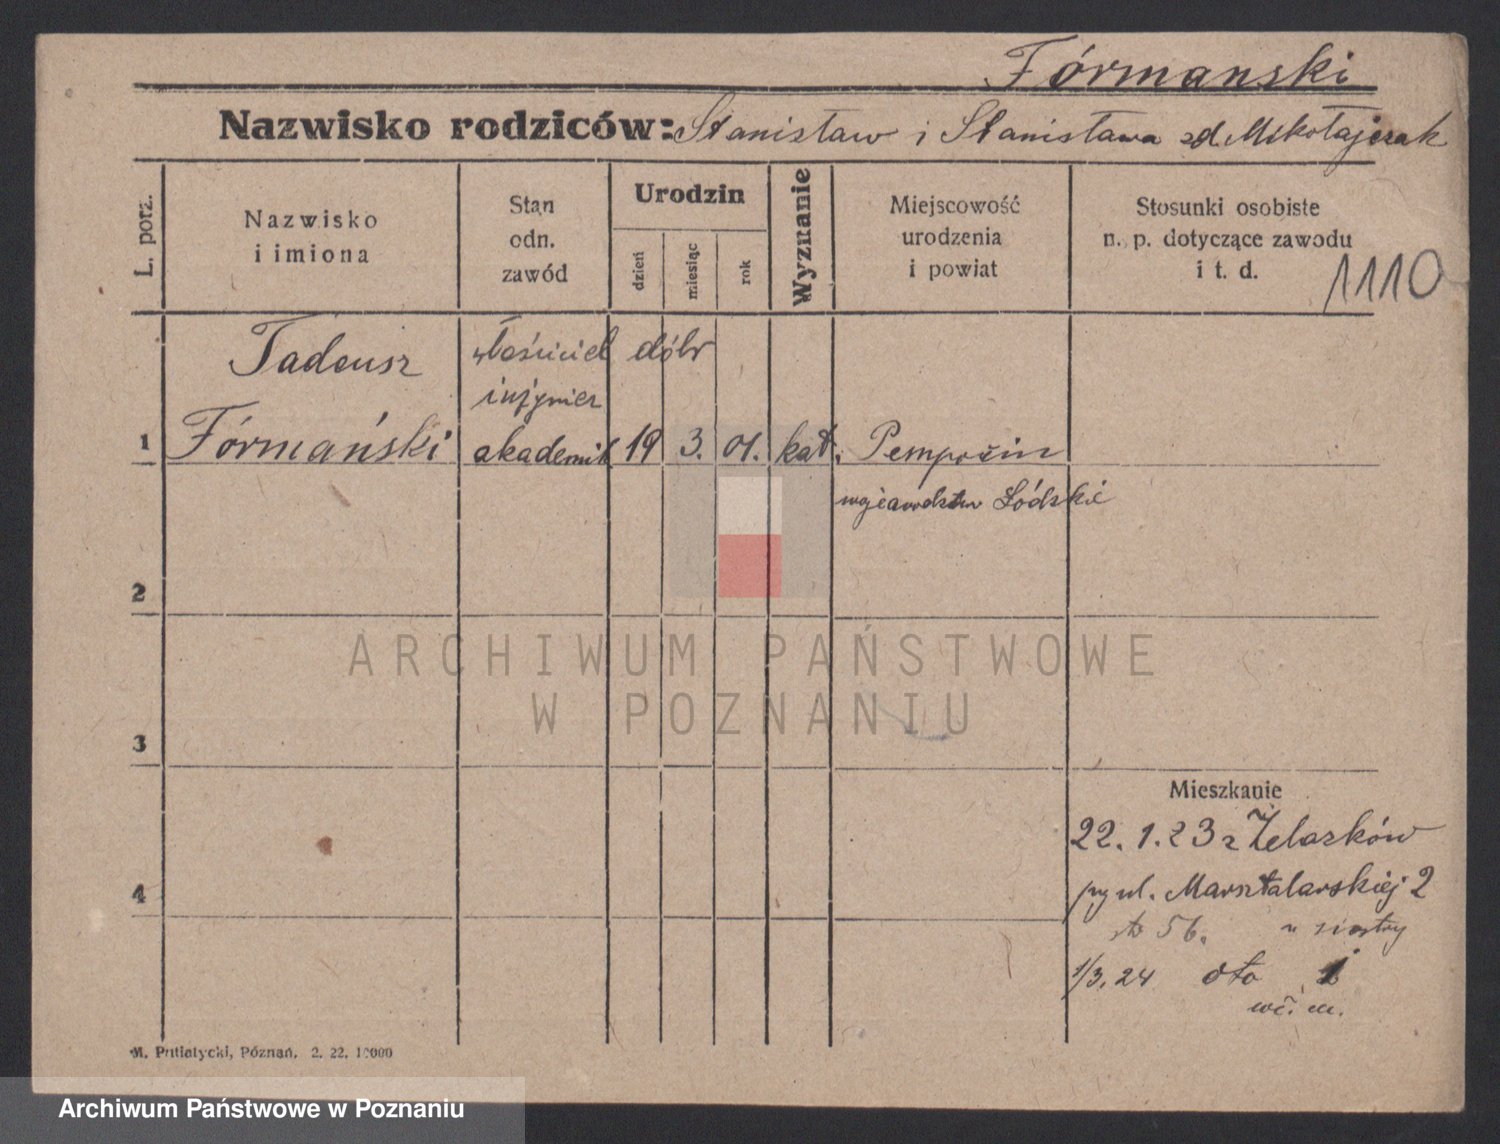 Fórmanski
Nazwisko rodziców: Stanisław i Stanisława zd. Mikołajczak
L. porz.
Nazwisko
i imiona
Stan
odn.
zawód
Urodzin
dzień
miesiąc
rok
Wyznanie
Miejscowość
urodzenia
i powiat
Stosunki osobiste
n. p. dotyczące zawodu
i t. d.
1110
Tadeusz
właściciel dóbr
inżynier
1 Fórmański akademik 19 3. 01. kat. Pempocin
województw Łódzkie
2
3
4
Mieszkanie
22. 1. 23 z Żelazków
przy ul. Marsztalarskiej 2
56. u siostry
1/3. 24 oto
M. Putiatycki, Póznań. 2. 22. 10000
ARCHIWUM PAŃSTWOWE
W POZNANIU
Archiwum Państwowe w Poznaniu